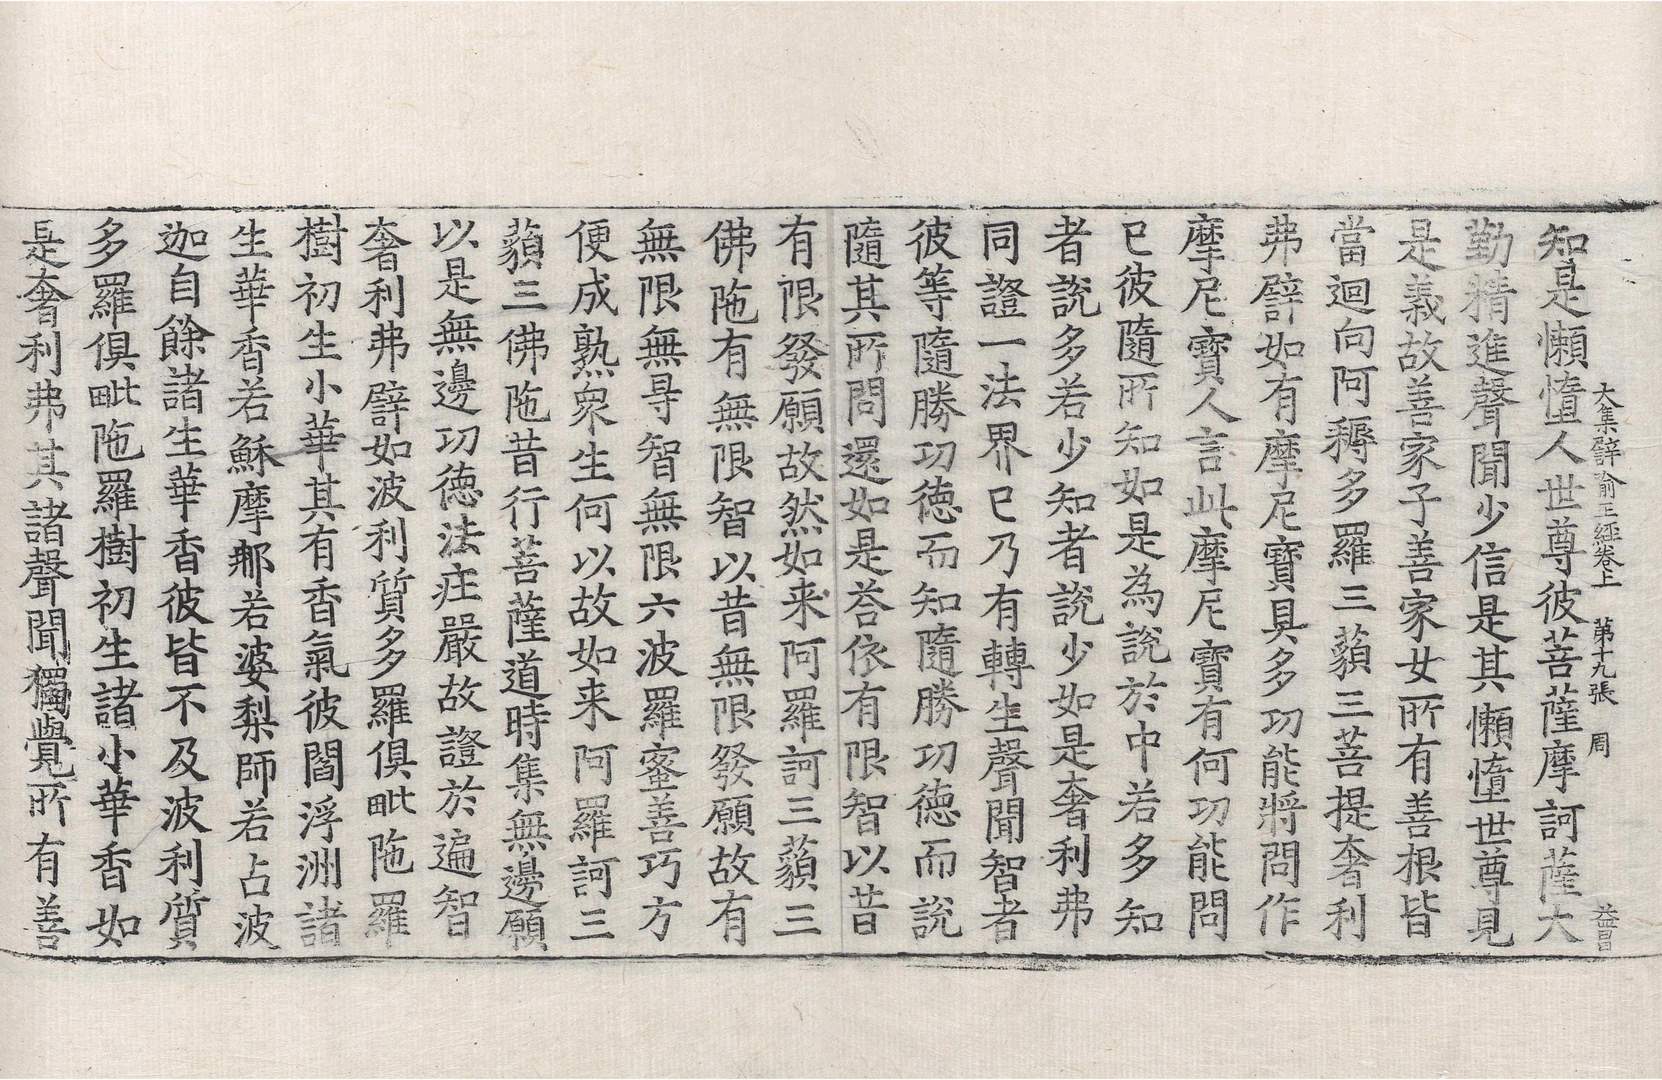 大集譬喻王經卷上 第十九張 周 益昌
知是懶惰人世尊彼菩薩摩訶薩大
勤精進聲聞少信是其懶惰世尊見
是義故善家子善家女所有善根皆
當迴向阿耨多羅三藐三菩提奢利
弗譬如有摩尼寶具多功能將問作
摩尼寶人言此摩尼寶有何功能問
已彼隨所知如是為說於中若多知
者說多若少知者說少如是奢利弗
同證一法界已乃有轉生聲聞智者
彼等隨勝功德而知隨勝功德而說
隨其所問還如是荅依有限智以昔
有限發願故然如来阿羅訶三藐三
佛陁有無限智以昔無限發願故有
無限無㝵智無限六波羅蜜善巧方
便成熟衆生何以故如来阿羅訶三
藐三佛陁昔行菩薩道時集無邊願
以是無邊功德法庄嚴故證於遍智
奢利弗譬如波利質多羅俱毗陁羅
樹初生小華其有香氣彼閻浮洲諸
生華香若蘇摩那若婆梨師若占波
迦自餘諸生華香彼皆不及波利質
多羅俱毗陁羅樹初生諸小華香如
是奢利弗其諸聲聞獨覺所有善